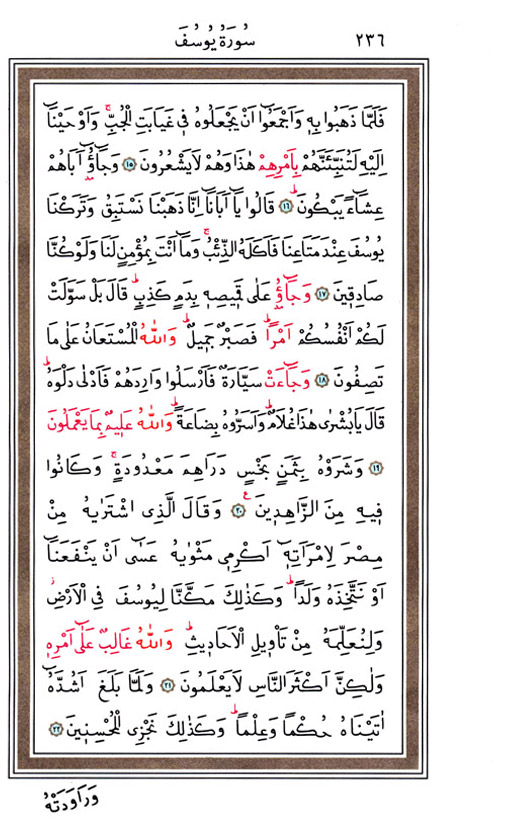 ٢٣٦ سُورَةُ يُوسُفَ
فَلَمَّا ذَهَبُوا بِهٖ وَاَجْمَعُٓوا اَنْ يَجْعَلُوهُ فٖي غَيَابَتِ الْجُبِّۚ وَاَوْحَيْنَٓا
اِلَيْهِ لَتُنَبِّئَنَّهُمْ بِاَمْرِهِمْ هٰذَا وَهُمْ لَا يَشْعُرُونَ ﴿١٥﴾ وَجَٓاؤُٓ اَبَاهُمْ
عِشَٓاءً يَبْكُونَؕ ﴿١٦﴾ قَالُوا يَٓا اَبَانَٓا اِنَّا ذَهَبْنَا نَسْتَبِقُ وَتَرَكْنَا
يُوسُفَ عِنْدَ مَتَاعِنَا فَاَكَلَهُ الذِّئْبُۚ وَمَٓا اَنْتَ بِمُؤْمِنٍ لَنَا وَلَوْ كُنَّا
صَادِقٖينَ ﴿١٧﴾ وَجَٓاؤُ عَلٰى قَمٖيصِهٖ بِدَمٍ كَذِبٍؕ قَالَ بَلْ سَوَّلَتْ
لَكُمْ اَنْفُسُكُمْ اَمْرًاؕ فَصَبْرٌ جَمٖيلٌؕ وَاللّٰهُ الْمُسْتَعَانُ عَلٰى مَا
تَصِفُونَ ﴿١٨﴾ وَجَٓاءَتْ سَيَّارَةٌ فَاَرْسَلُوا وَارِدَهُمْ فَاَدْلٰى دَلْوَهُؕ
قَالَ يَا بُشْرٰى هٰذَا غُلَامٌؕ وَاَسَرُّوهُ بِضَاعَةًؕ وَاللّٰهُ عَلٖيمٌ بِمَا يَعْمَلُونَ
﴿١٩﴾ وَشَرَوْهُ بِثَمَنٍ بَخْسٍ دَرَاهِمَ مَعْدُودَةٍۚ وَكَانُوا
فٖيهِ مِنَ الزَّاهِدٖينَ ع ﴿٢٠﴾ وَقَالَ الَّذِي اشْتَرٰيهُ مِنْ
مِصْرَ لِامْرَاَتِهٖٓ اَكْرِمٖي مَثْوٰيهُ عَسٰٓى اَنْ يَنْفَعَنَٓا
اَوْ نَتَّخِذَهُ وَلَدًاؕ وَكَذٰلِكَ مَكَّنَّا لِيُوسُفَ فِي الْاَرْضِؗ
وَلِنُعَلِّمَهُ مِنْ تَأْوٖيلِ الْاَحَادٖيثِؕ وَاللّٰهُ غَالِبٌ عَلٰٓى اَمْرِهٖ
وَلٰكِنَّ اَكْثَرَ النَّاسِ لَا يَعْلَمُونَ ﴿٢١﴾ وَلَمَّا بَلَغَ اَشُدَّهُٓ
اٰتَيْنَاهُ حُكْمًا وَعِلْمًاؕ وَكَذٰلِكَ نَجْزِي الْمُحْسِنٖينَ ﴿٢٢﴾
وَرَاوَدَتْهُ